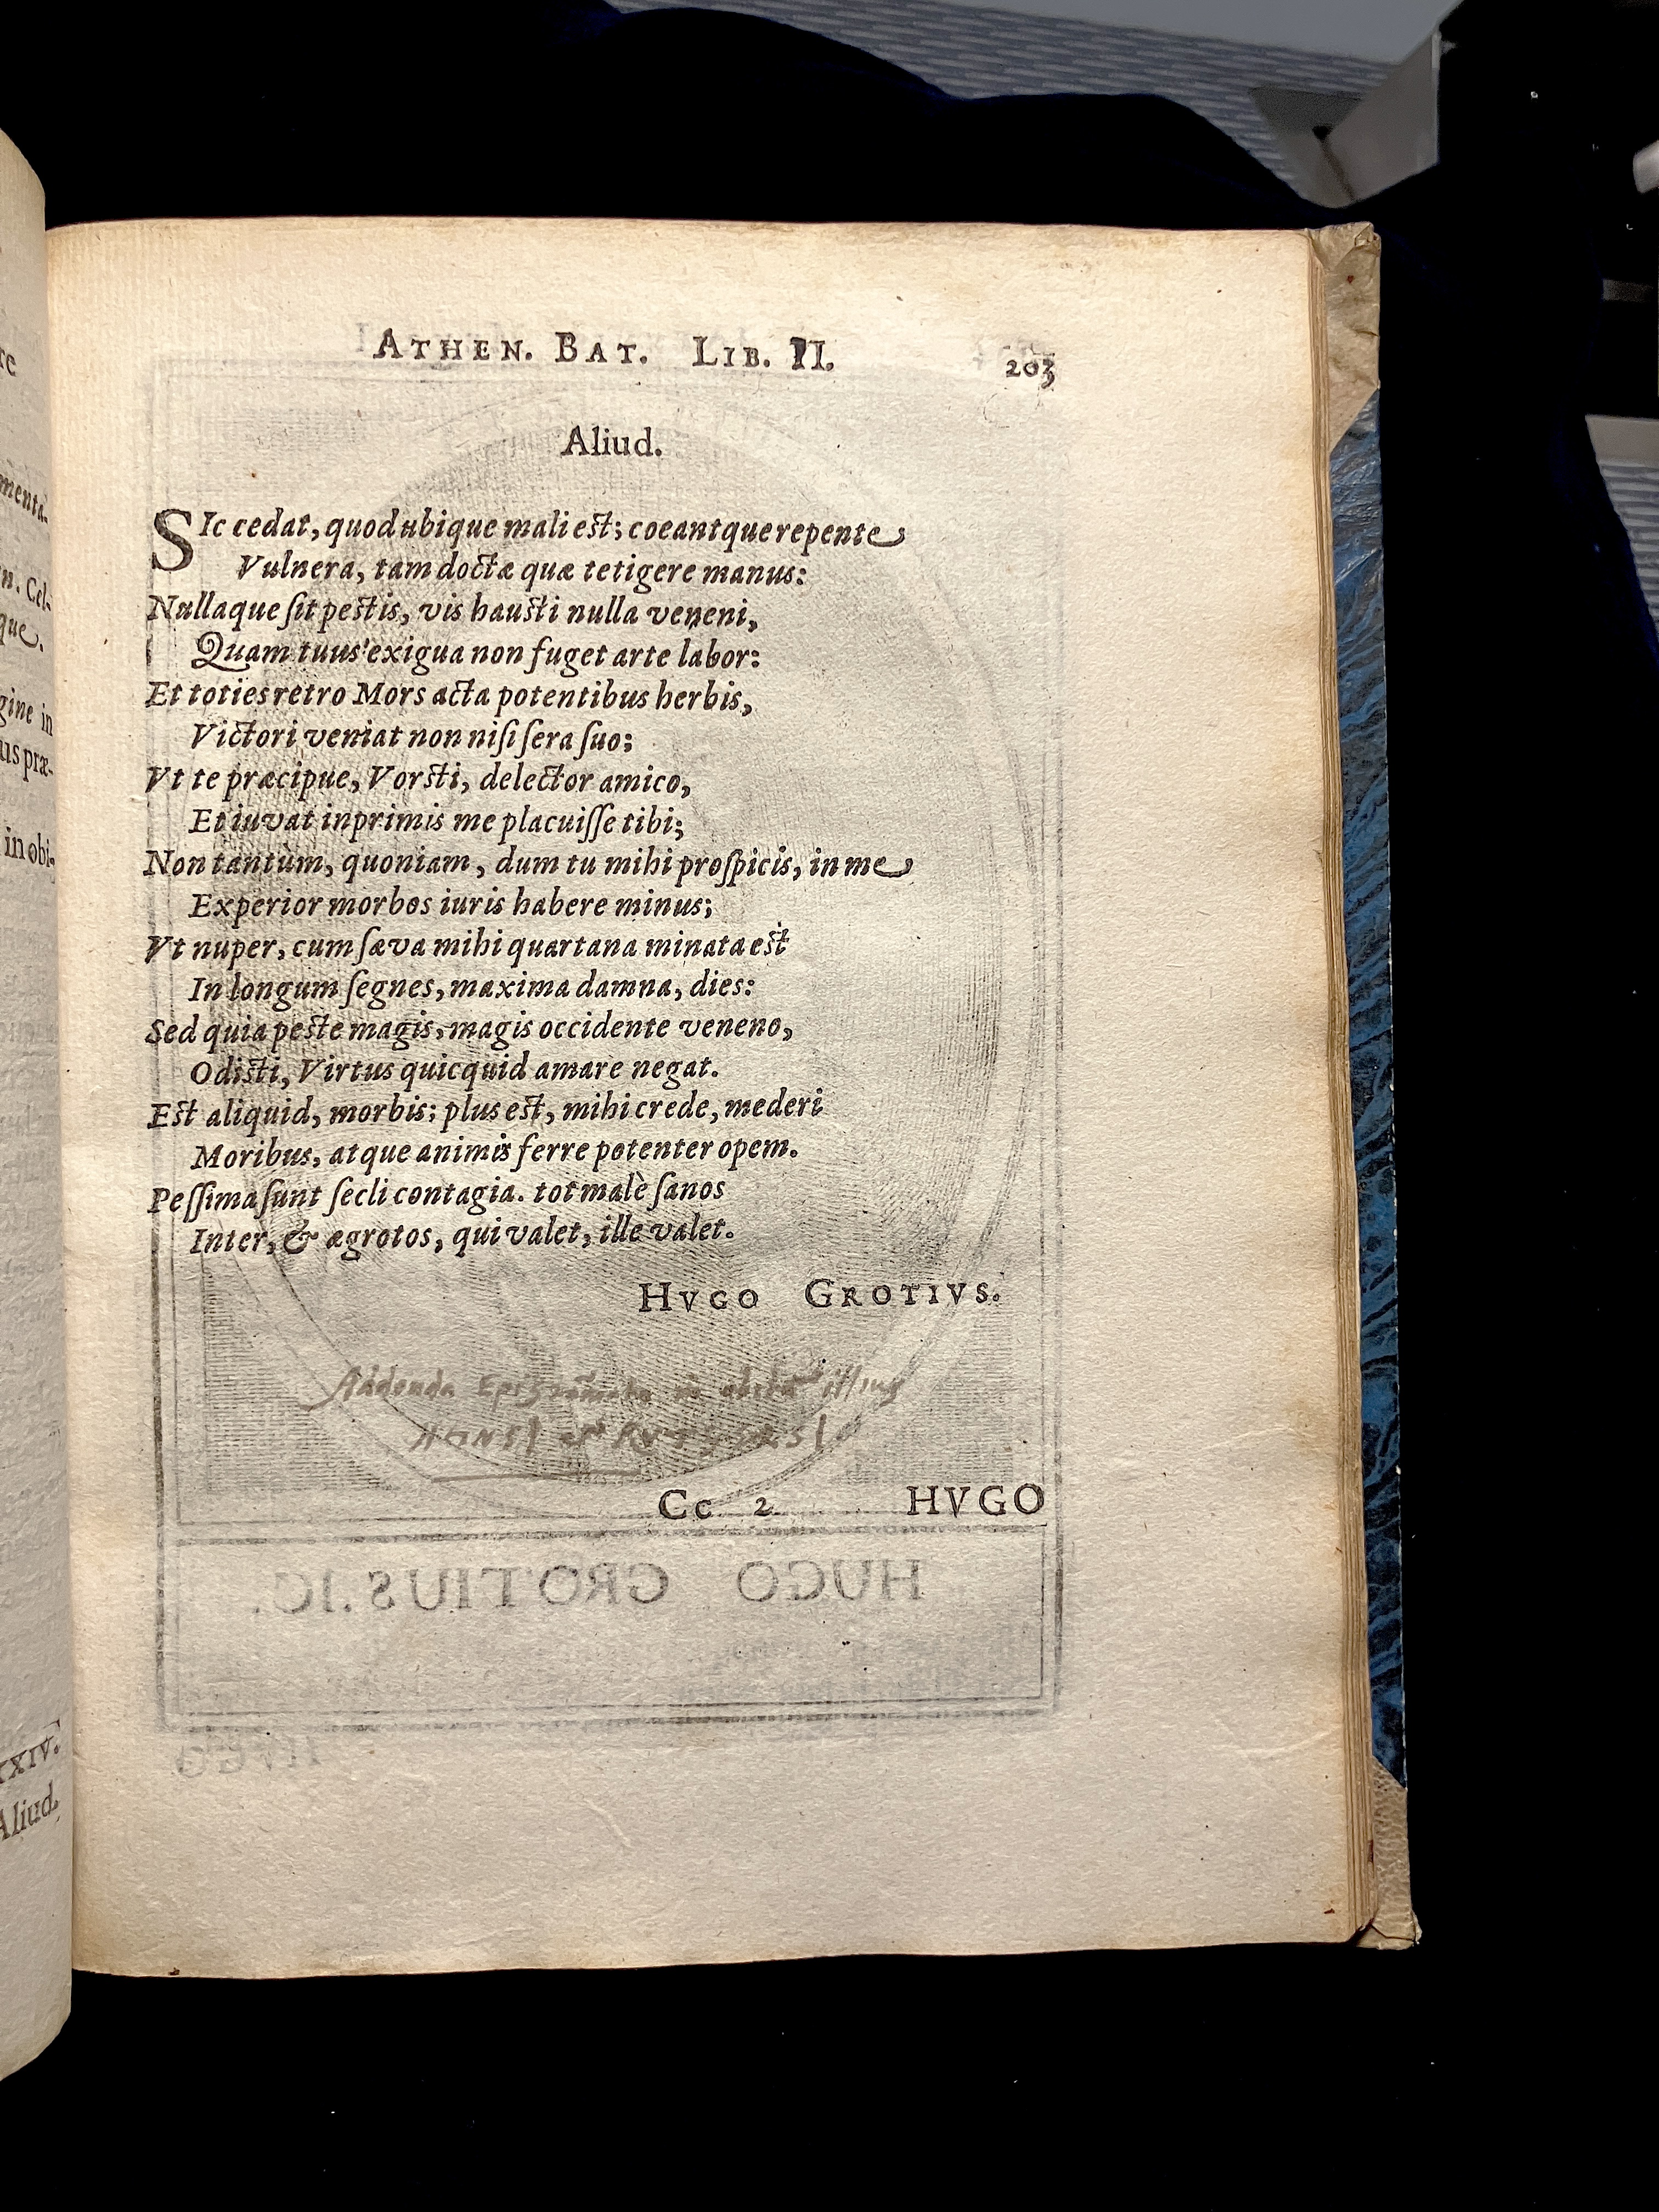 re
menta-
n. Cel-
que.
gine in
us præ-
in obi-
XXIV.
Aliud.
ATHEN. BAT. LIB. II.
203
Aliud.
SIc cedat, quod ubique mali est; coeantque repente
Vulnera, tam doctæ quæ tetigere manus:
Nullaque ſit pestis, vis hausti nulla veneni,
Quam tuus exigua non fuget arte labor:
Et toties retro Mors acta potentibus herbis,
Victori veniat non niſi ſera ſuo;
Vt te præcipue, Vorsti, delector amico,
Et iuvat inprimis me placuiſſe tibi;
Non tantùm, quoniam, dum tu mihi proſpicis, in me
Experior morbos iuris habere minus;
Vt nuper, cum ſæva mihi quartana minata est
In longum ſegnes, maxima damna, dies:
Sed quia peste magis, magis occidente veneno,
Odisti, Virtus quicquid amare negat.
Est aliquid, morbis; plus est, mihi crede, mederi
Moribus, atque animis ferre potenter opem.
Peſſima ſunt ſecli contagia. tot malè ſanos
Inter, & ægrotos, qui valet, ille valet.
HVGO GROTIVS.
Addenda Epigrammata in obitum illius
Cc 2
HVGO
HUGO GROTIUS. IC.